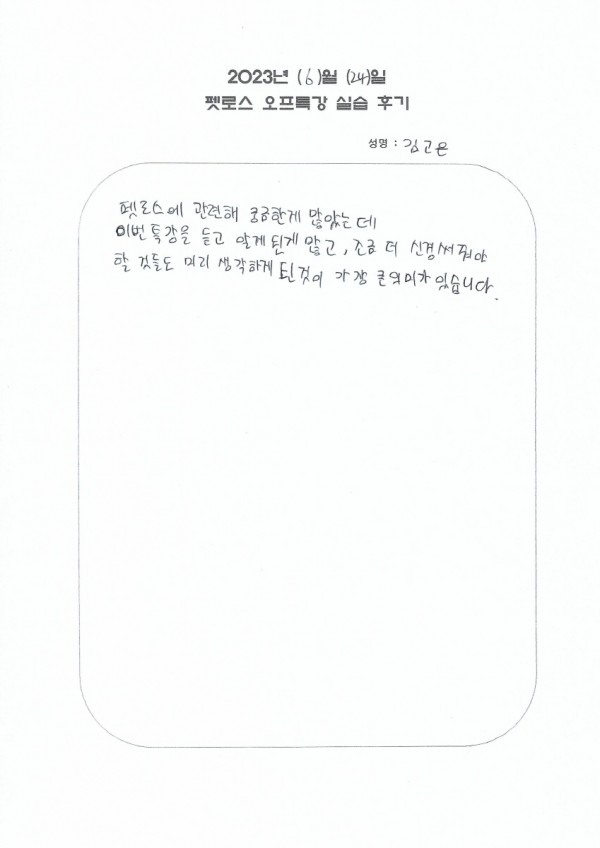 2023년 (6)월 (24)일
펫로스 오프특강 실습 후기
성명 : 김고은
펫로스에 관련해 궁금한게 많았는데
이번 특강을 듣고 알게 된게 많고, 조금 더 신경써줘야
할 것들도 미리 생각하게 된것이 가장 큰의미가 있습니다.